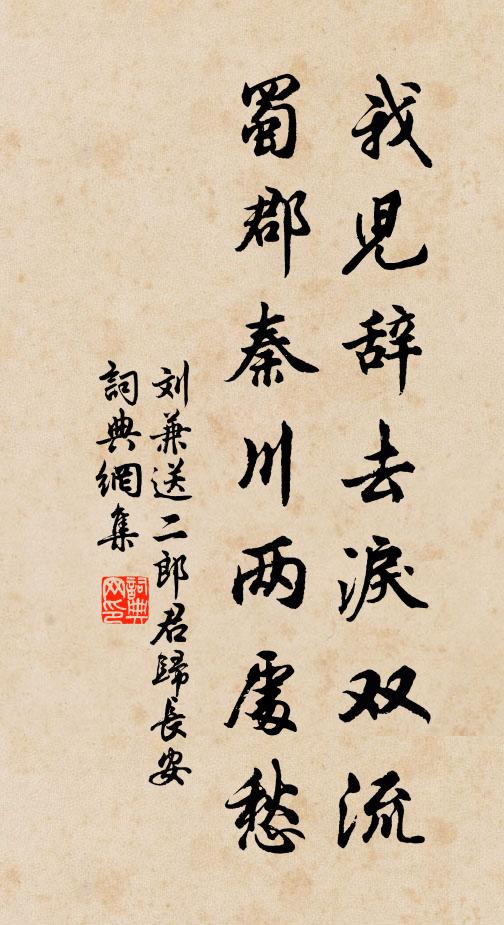 我児辞去淚双流
蜀郡秦川两處愁
刘兼送二郎君歸長安
詞典網集
詞典
网印